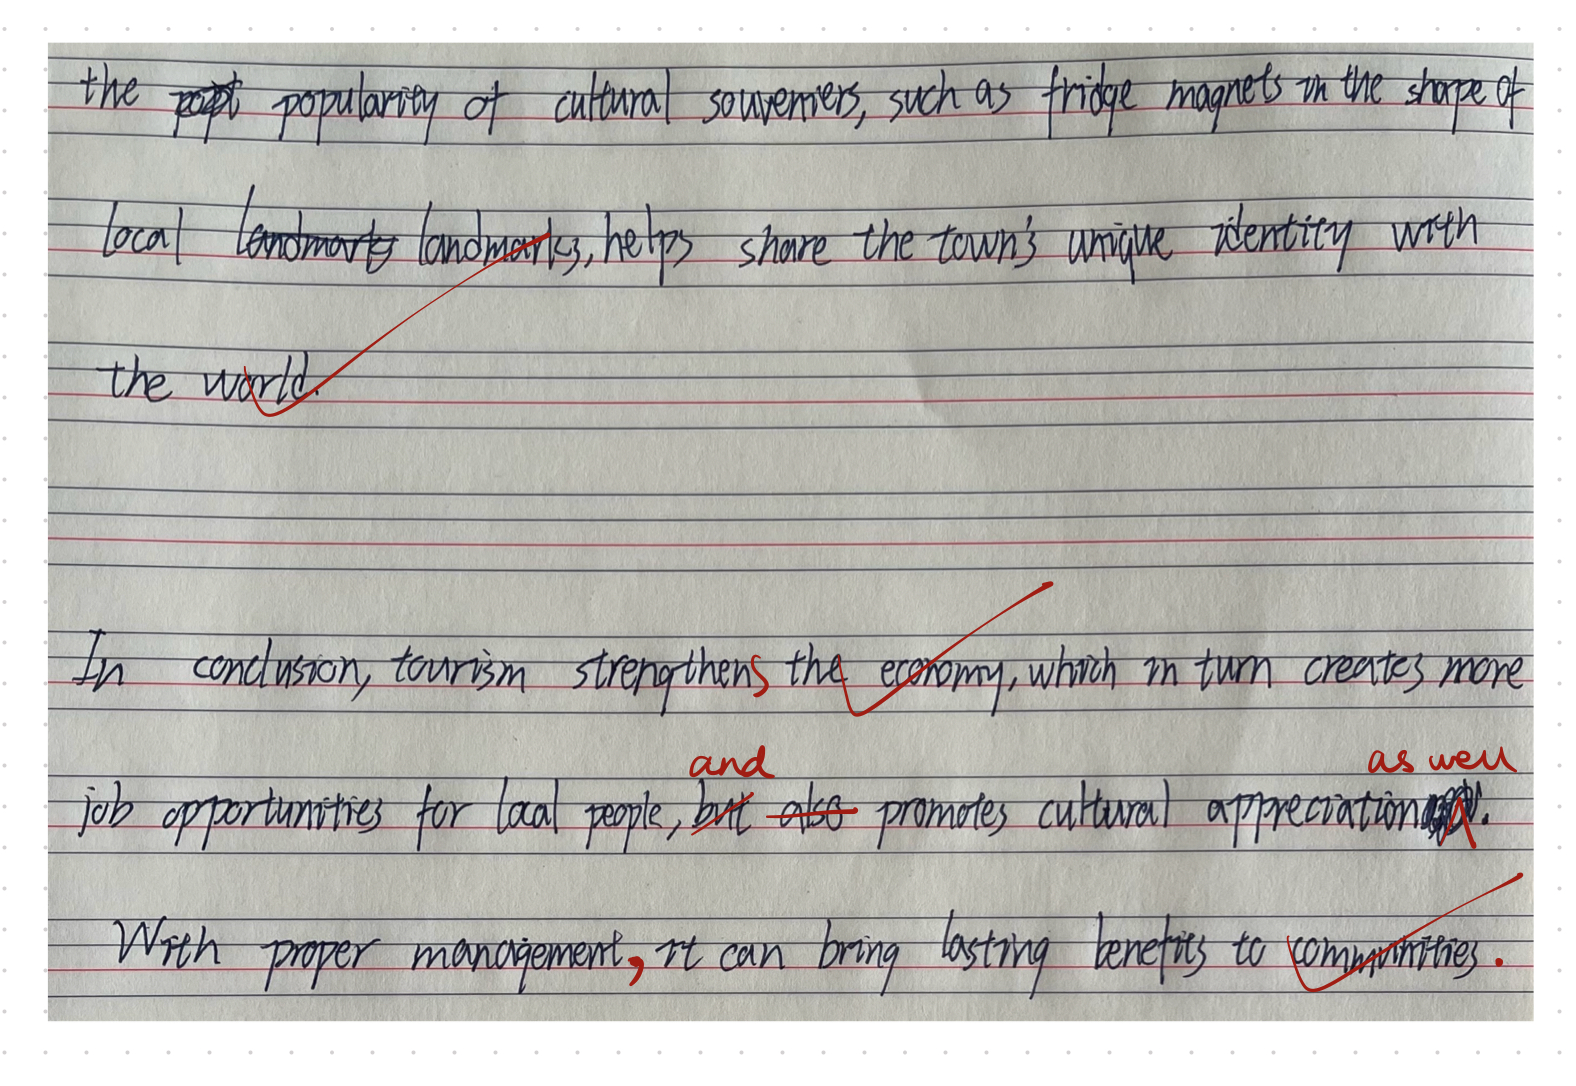 the popularity of cultural souveniers, such as fridge magnets in the shape of
local landmarks landmarks, helps share the town's unique identity with
the world.
In conclusion, tourism strengthens the economy, which in turn creates more
and as well
job opportunities for local people, but also promotes cultural appreciation.
With proper management, it can bring lasting benefits to communities.